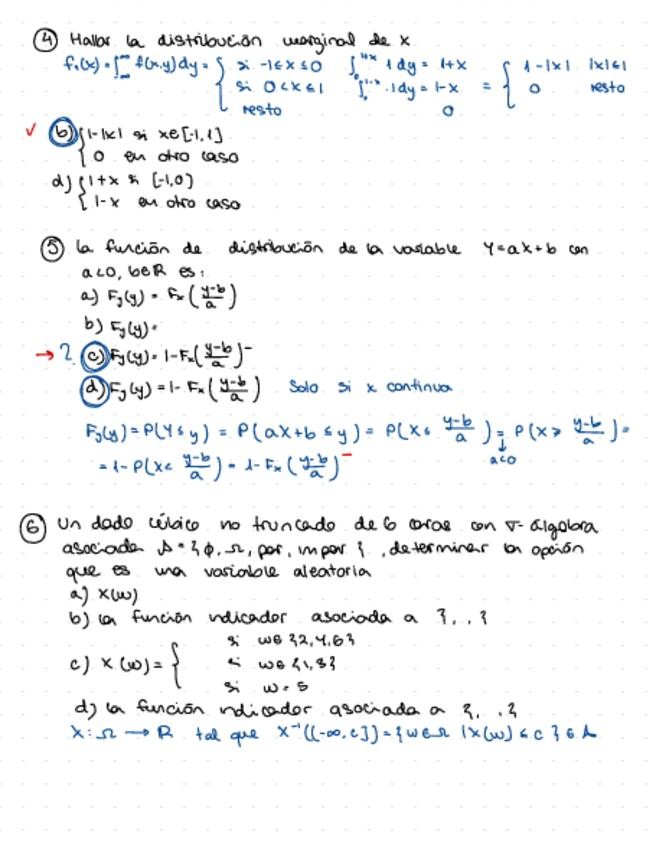 ④ Hallar la distribución marginal de x
f₁(x) = ∫_{-∞}^{∞} f(x,y) dy = { si -1≤x≤0 ∫_0^{1+x} 1 dy = 1+x
si 0<x≤1 ∫_0^{1-x} 1 dy = 1-x = { 1-|x| |x|≤1
resto 0 0 resto
✓ b) { 1-|x| si x∈[-1,1]
0 en otro caso
d) { 1+x si [-1,0)
1-x en otro caso
⑤ la función de distribución de la variable Y=aX+b con
a<0, b∈R es:
a) Fy(y) = Fx((y-b)/a)
b) Fy(y)=
→ 2 c) Fy(y) = 1-Fx((y-b)/a)⁻
d) Fy(y) = 1- Fx((y-b)/a) Solo si x continua
Fy(y) = P(Y≤y) = P(aX+b≤y) = P(X≤ (y-b)/a) = P(X≥ (y-b)/a) =
↓
a<0
= 1-P(X< (y-b)/a) = 1-Fx((y-b)/a)⁻
⑥ Un dado cúbico no truncado de 6 caras con σ-álgebra
asociada A={∅,Ω,par,impar}, determinar la opción
que es una variable aleatoria
a) X(ω)
b) la función indicador asociada a {,,}
c) X(ω) = { si ω∈{2,4,6}
si ω∈{1,3}
si ω=5
d) la función indicador asociada a {,,}
X: Ω → R tal que X⁻¹((-∞,c]) = {ω∈Ω | X(ω)≤c} ∈ A